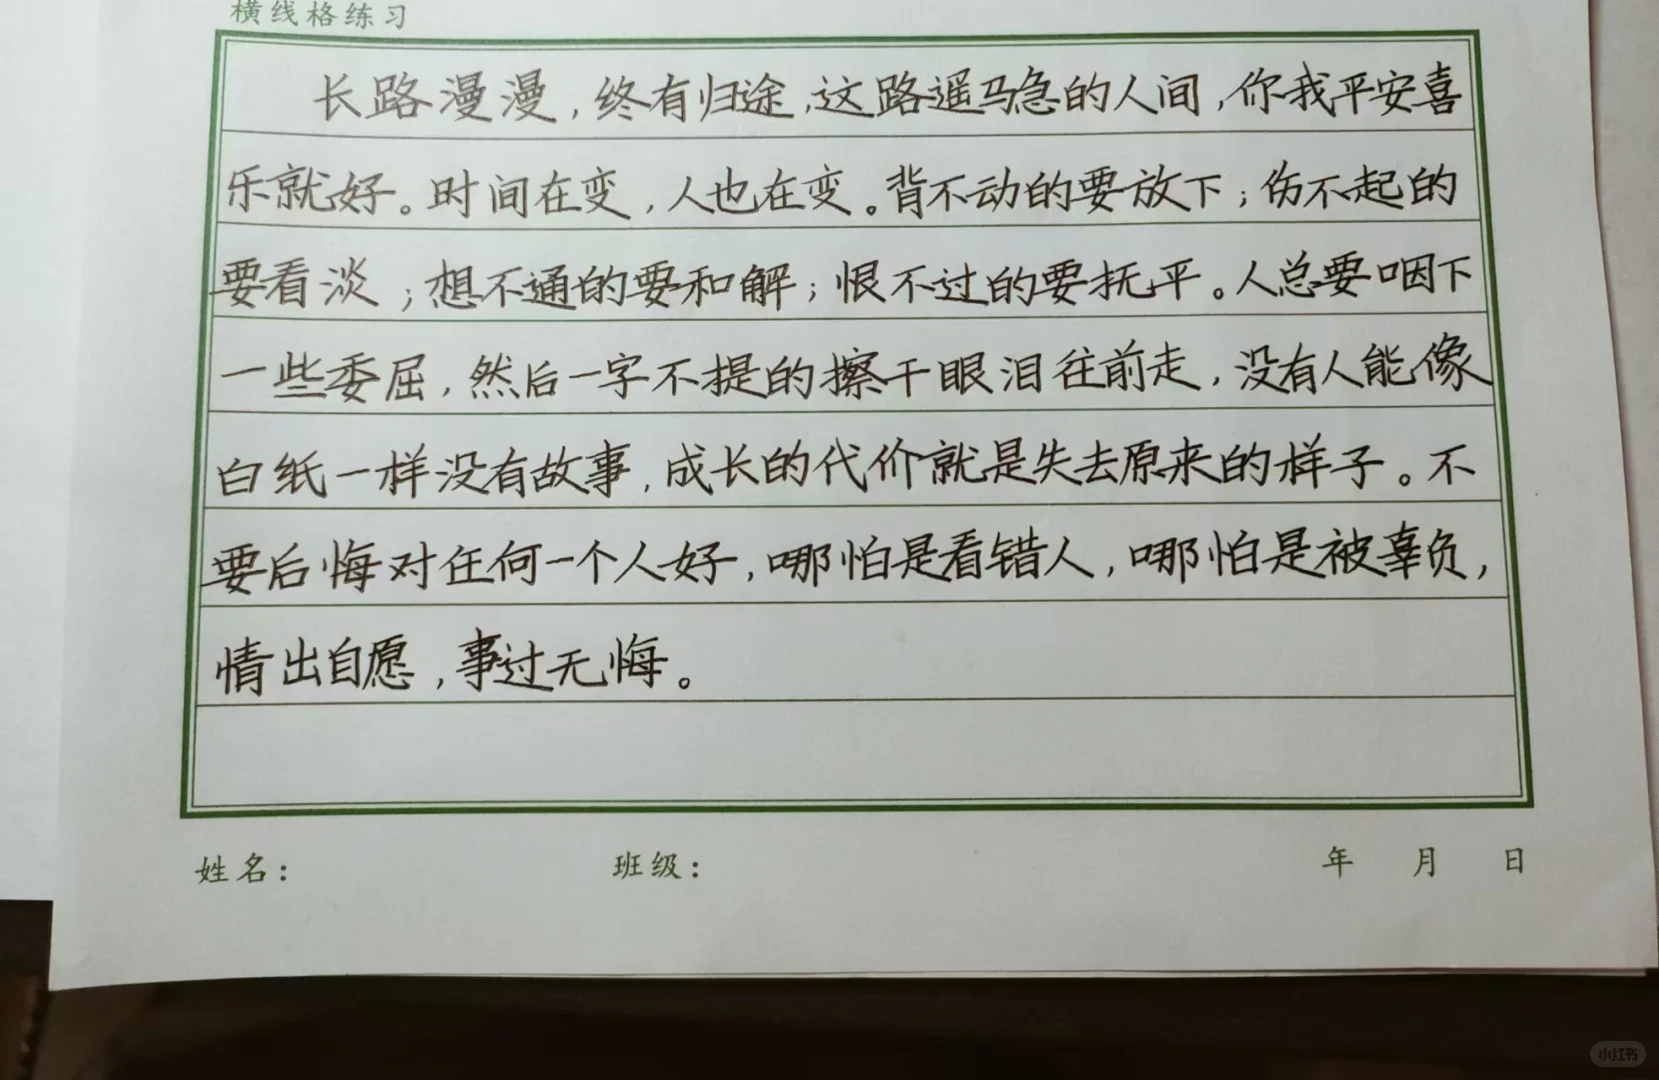 横线格练习
长路漫漫，终有归途，这路遥马急的人间，你我平安喜
乐就好。时间在变，人也在变。背不动的要放下；伤不起的
要看淡；想不通的要和解；恨不过的要抚平。人总要咽下
一些委屈，然后一字不提的擦干眼泪往前走，没有人能像
白纸一样没有故事，成长的代价就是失去原来的样子。不
要后悔对任何一个人好，哪怕是看错人，哪怕是被辜负，
情出自愿，事过无悔。
姓名： 班级： 年 月 日
小红书